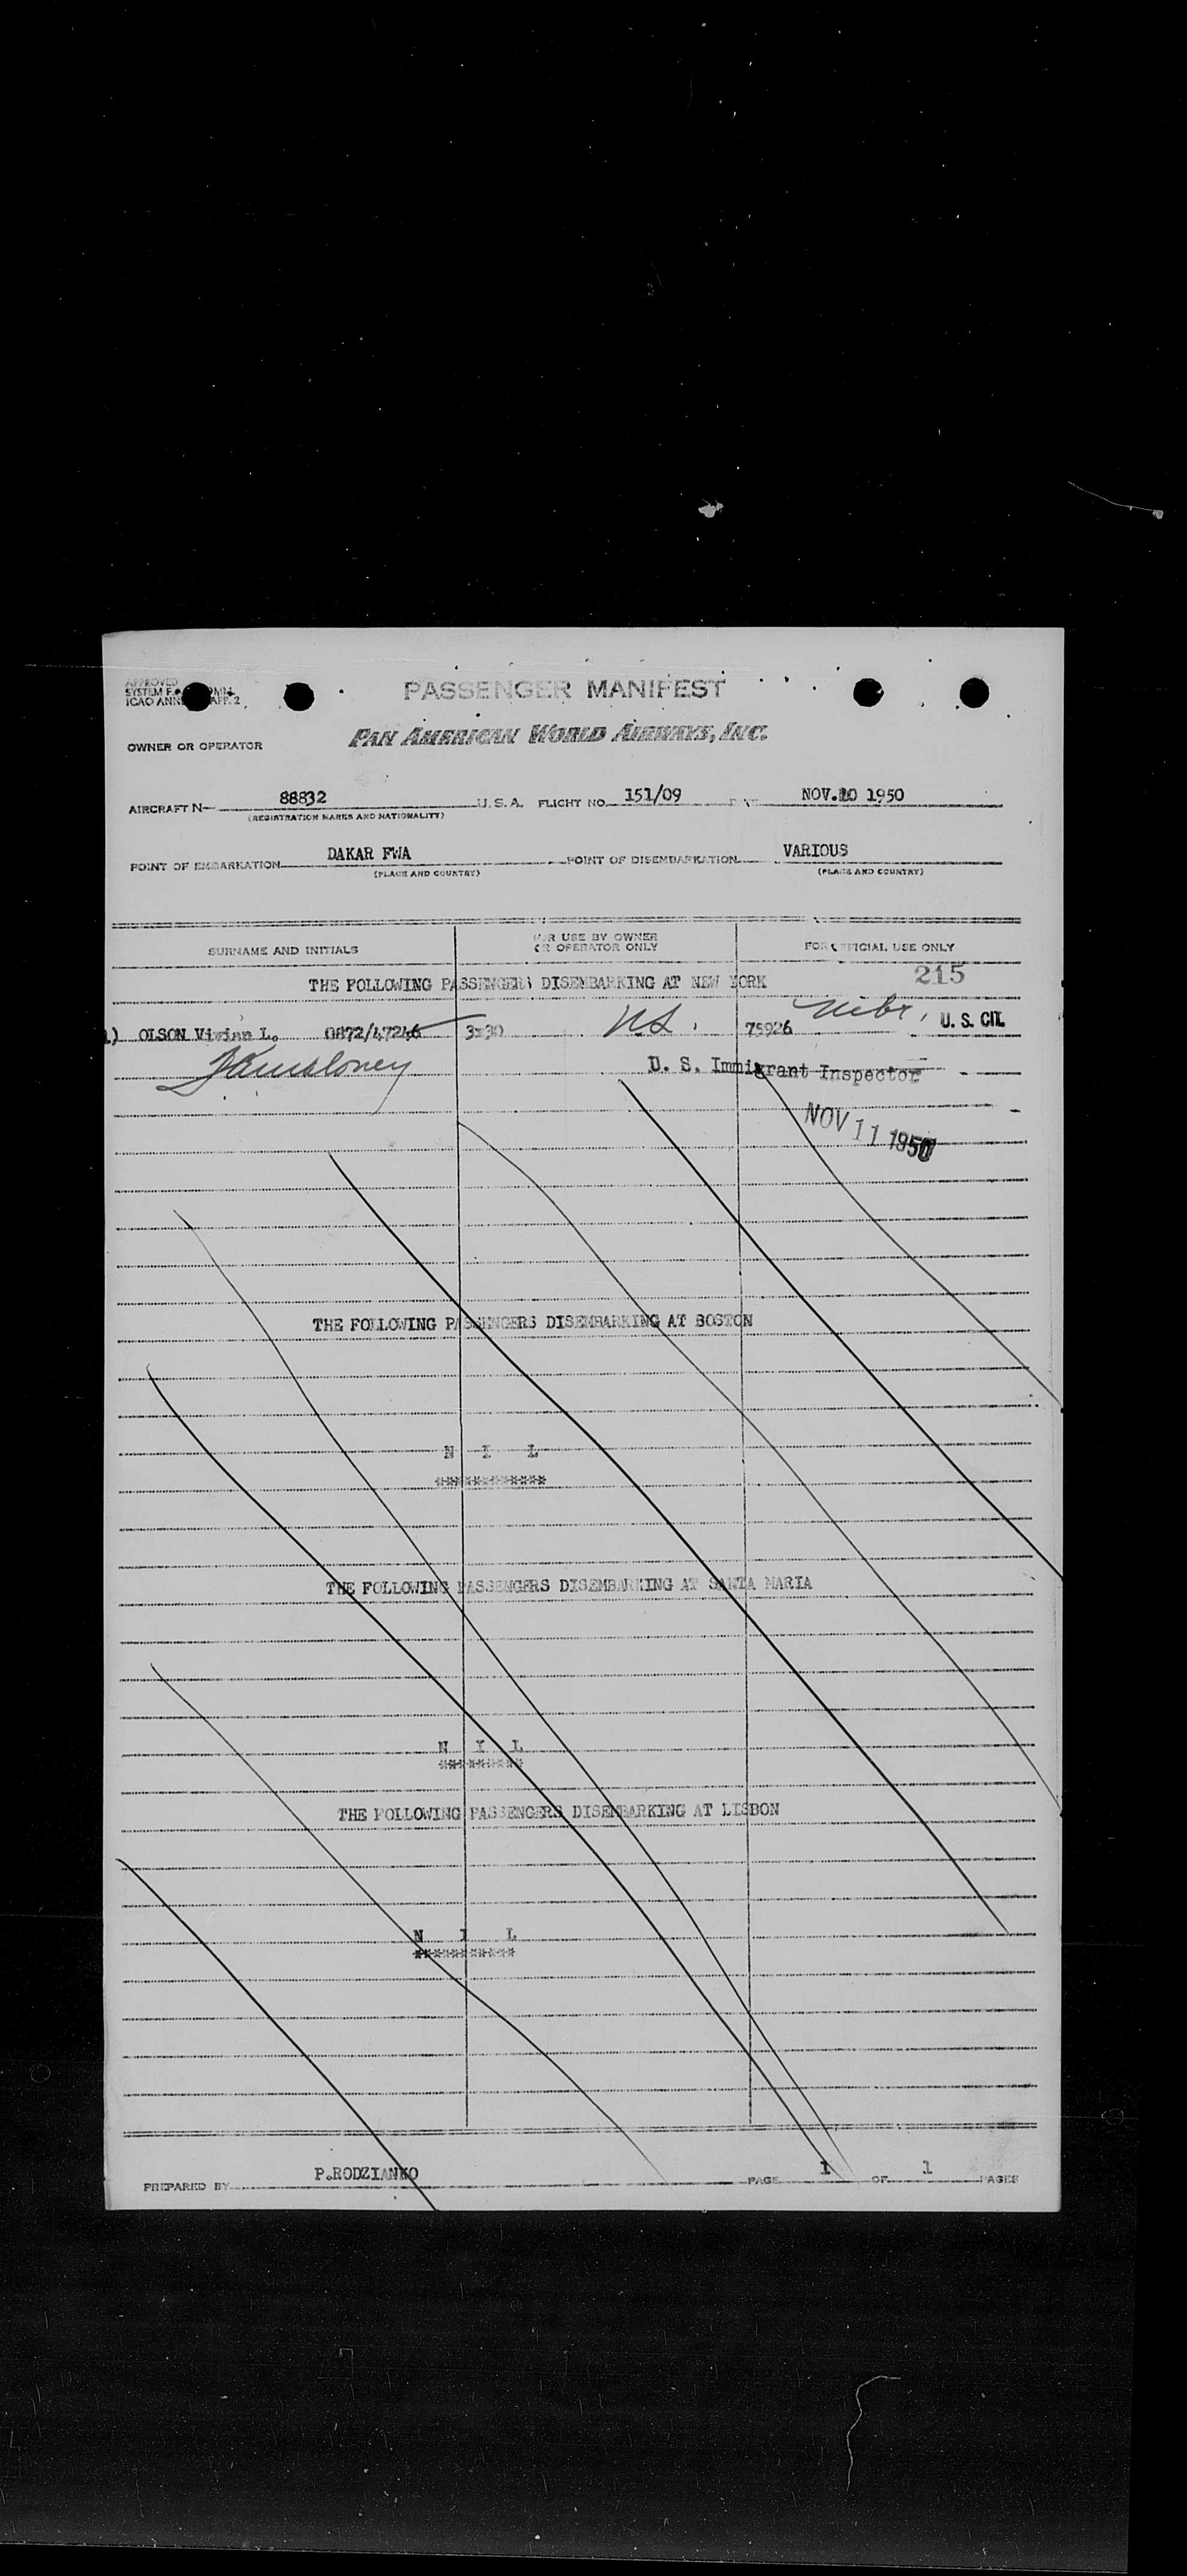 APPROVED
SYSTEM
ICAO ANN APP. 2
PASSENGER MANIFEST
PAN AMERICAN WORLD AIRWAYS, INC.
OWNER OR OPERATOR
AIRCRAFT N— 88832 U.S.A. FLIGHT NO. 151/09 NOV.10 1950
(REGISTRATION MARKS AND NATIONALITY)
POINT OF EMBARKATION DAKAR FWA POINT OF DISEMBARKATION VARIOUS
(PLACE AND COUNTRY) (PLACE AND COUNTRY)
SURNAME AND INITIALS FOR USE BY OWNER OR OPERATOR ONLY FOR OFFICIAL USE ONLY
215
THE FOLLOWING PASSENGERS DISEMBARKING AT NEW YORK
1) OLSON Vivian L. 0872/47246 75926 U. S. CIT.
U. S. Immigrant Inspector
NOV 11 1950
THE FOLLOWING PASSENGERS DISEMBARKING AT BOSTON
N I L
************
THE FOLLOWING PASSENGERS DISEMBARKING AT SANTA MARIA
N I L
*********
THE FOLLOWING PASSENGERS DISEMBARKING AT LISBON
N I L
***********
PREPARED BY P.RODZIANKO PAGE 1 OF 1 PAGES